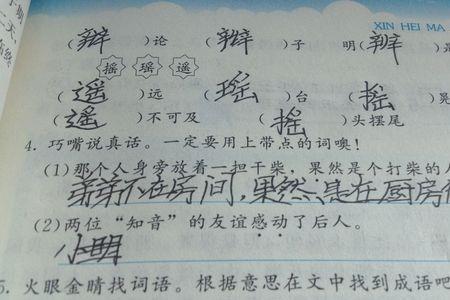 XIN HEI MA
(辩)论 (辫)子 明(辨)是
摇 瑶 遥
(遥)远 (瑶)台 (摇)晃
(遥)不可及 (摇)头摆尾
4. 巧嘴说真话。一定要用上带点的词噢!
(1)那个人身旁放着一担干柴,果然是个打柴的人
芽芽不在房间,果然是在厨房
(2)两位“知音”的友谊感动了后人。
小明
5. 火眼金睛找词语。根据意思在文中找到成语吧